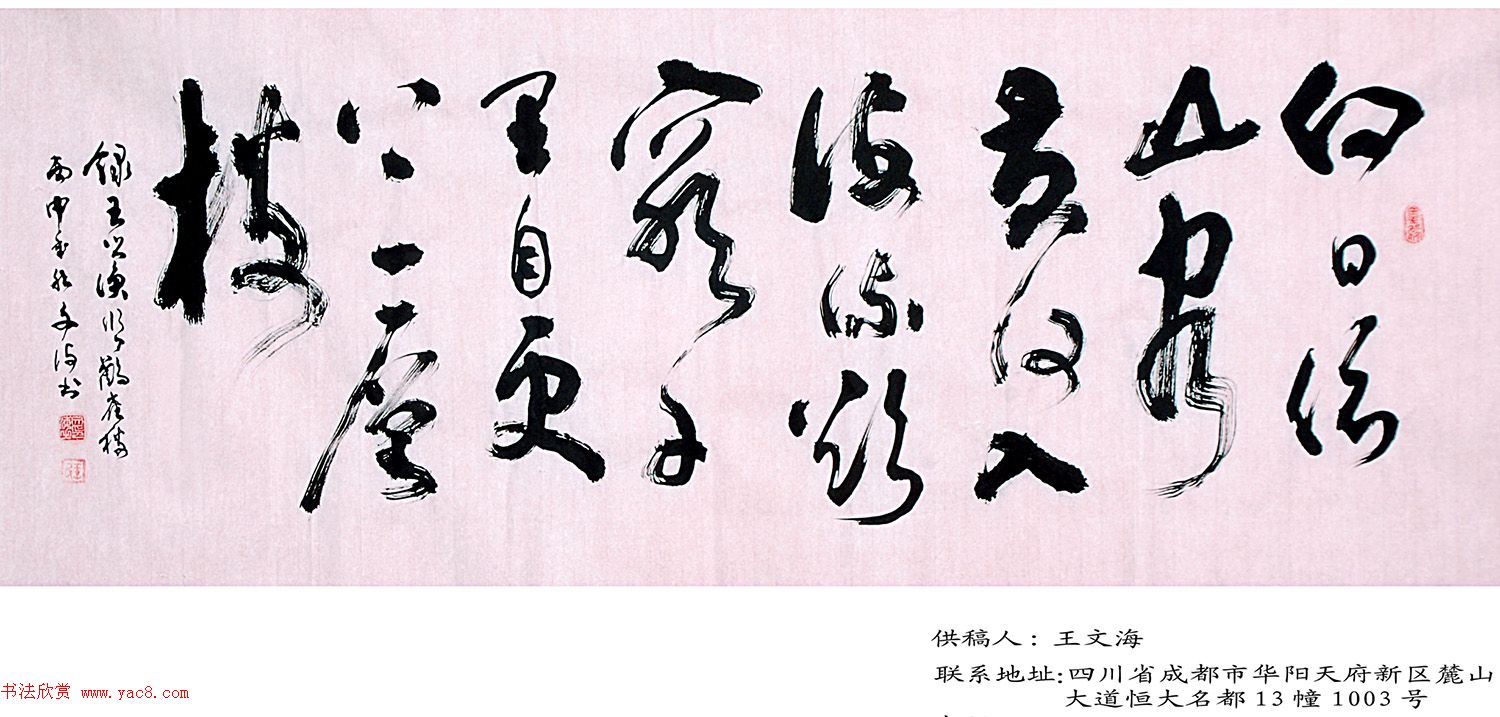 白日依
山盡
黄河入
海流欲
窮千
里目更
上一層
樓
錄王之渙鸛雀樓
丙申秋文海书
供稿人：王文海
联系地址:四川省成都市华阳天府新区麓山
大道恒大名都13幢1003号
书法欣赏 www.yac8.com